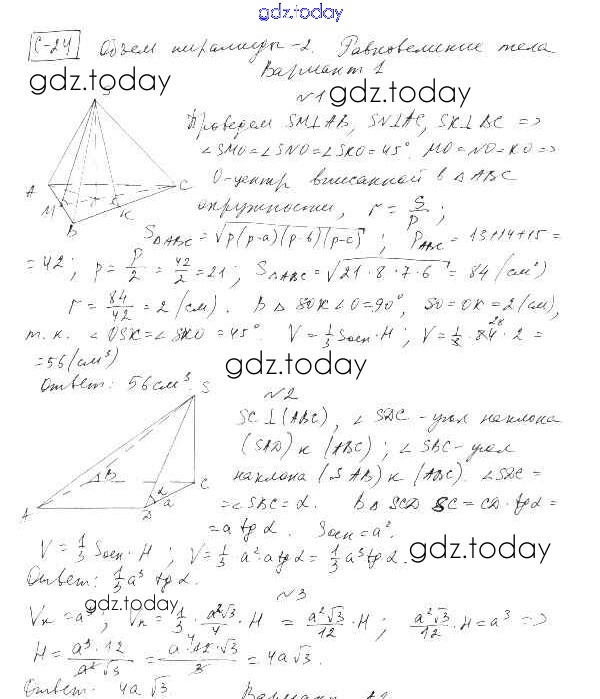 gdz.today
С-24 Объем пирамиды-2. Равновеликие тела
Вариант 1
gdz.today
gdz.today
№1
S
Проведем SM⊥AB, SN⊥AC, SK⊥BC =>
∠SMO=∠SNO=∠SKO=45°. MO=NO=KO =>
O-центр вписанной в △ABC
окружности, r = S/p;
A C M O K B
S△ABC = √p(p-a)(p-b)(p-c); P ABC = 13+14+15 =
= 42; p = P/2 = 42/2 = 21; S△ABC = √21·8·7·6 = 84 (см²)
r = 84/42 = 2 (см). В △ SOK ∠O=90°, SO=OK=2(см),
т.к. ∠OSK=∠SKO=45°. V = 1/3 Sосн·H; V = 1/3·84·2 =
28
=56(см³)
gdz.today
Ответ: 56см³.
№2
S
SC⊥(ABC), ∠SDC - угол наклона
(SAD) к (ABC); ∠SBC - угол
наклона (SAB) к (ABC). ∠SDC =
=∠SBC=α. В △ SCD SC=CD·tgα=
=a tgα. Sосн=a².
B C α a A D
V = 1/3 Sосн·H; V = 1/3 a²·a tgα = 1/3 a³ tgα.
gdz.today
Ответ: 1/3 a³ tgα.
№3
gdz.today
Vк = a³; Vп = 1/3·a²√3/4·H = a²√3/12·H; a²√3/12·H = a³ =>
H = a³·12/a²√3 = a·12·√3/3 = 4a√3.
Ответ: 4a√3.
Вариант 2